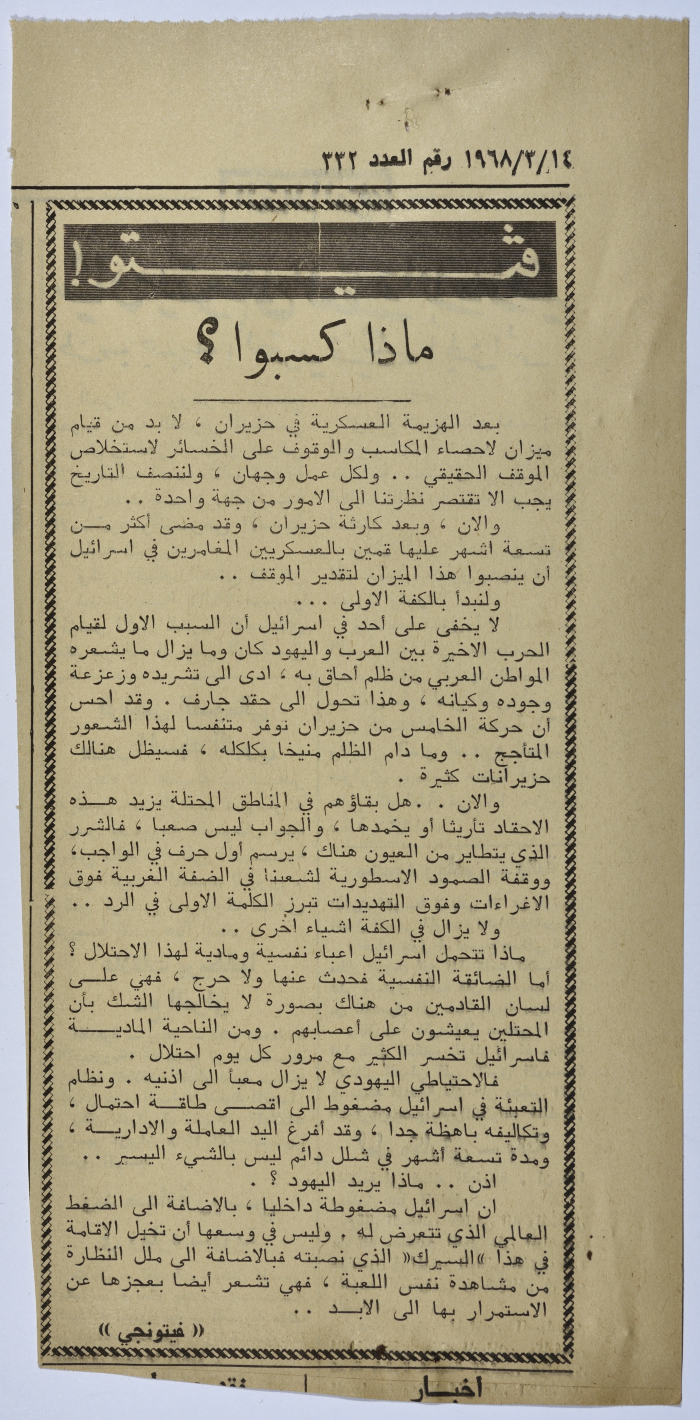 ١٩٦٨/٣/١٤ رقم العدد ٣٣٢
ڤيتو!
ماذا كسبوا ؟
بعد الهزيمة العسكرية في حزيران ، لا بد من قيام
ميزان لاحصاء المكاسب والوقوف على الخسائر لاستخلاص
الموقف الحقيقي .. ولكل عمل وجهان ، ولننصف التاريخ
يجب الا تقتصر نظرتنا الى الامور من جهة واحدة ..
والان ، وبعد كارثة حزيران ، وقد مضى أكثر مــن
تسعة اشهر عليها قمين بالعسكريين المغامرين في اسرائيل
أن ينصبوا هذا الميزان لتقدير الموقف ..
ولنبدأ بالكفة الاولى ...
لا يخفى على أحد في اسرائيل أن السبب الاول لقيام
الحرب الاخيرة بين العرب واليهود كان وما يزال ما يشعره
المواطن العربي من ظلم أحاق به ، ادى الى تشريده وزعزعة
وجوده وكيانه ، وهذا تحول الى حقد جارف . وقد احس
أن حركة الخامس من حزيران نوفر متنفسا لهذا الشعور
المتأجج .. وما دام الظلم منيخا بكلكله ، فسيظل هنالك
حزيرانات كثيرة .
والان . . هل بقاؤهم في المناطق المحتلة يزيد هــذه
الاحقاد تأريثا أو يخمدها ، والجواب ليس صعبا ، فالشرر
الذي يتطاير من العيون هناك ، يرسم أول حرف في الواجب،
ووقفة الصمود الاسطورية لشعبنا في الضفة الغربية فوق
الاغراءات وفوق التهديدات تبرز الكلمة الاولى في الرد ..
ولا يزال في الكفة اشياء اخرى ..
ماذا تتحمل اسرائيل اعباء نفسية ومادية لهذا الاحتلال ؟
أما الضائقة النفسية فحدث عنها ولا حرج ، فهي علــى
لسان القادمين من هناك بصورة لا يخالجها الشك بأن
المحتلين يعيشون على أعصابهم . ومن الناحية الماديــــة
فاسرائيل تخسر الكثير مع مرور كل يوم احتلال .
فالاحتياطي اليهودي لا يزال معبأ الى اذنيه . ونظام
التعبئة في اسرائيل مضغوط الى اقصــى طاقــة احتمال ،
وتكاليفه باهظة جدا ، وقد أفرغ اليد العاملة والاداريــة ،
ومدة تسعة أشهر في شلل دائم ليس بالشيء اليسير ..
اذن .. ماذا يريد اليهود ؟ .
ان اسرائيل مضغوطة داخليا ، بالاضافة الى الضغط
العالمي الذي تتعرض له . وليس في وسعها أن تخيل الاقامة
في هذا «السيرك» الذي نصبته فبالاضافة الى ملل النظارة
من مشاهدة نفس اللعبة ، فهي تشعر أيضا بعجزها عن
الاستمرار بها الى الابــد ..
« فيتونجي »
اخبـار